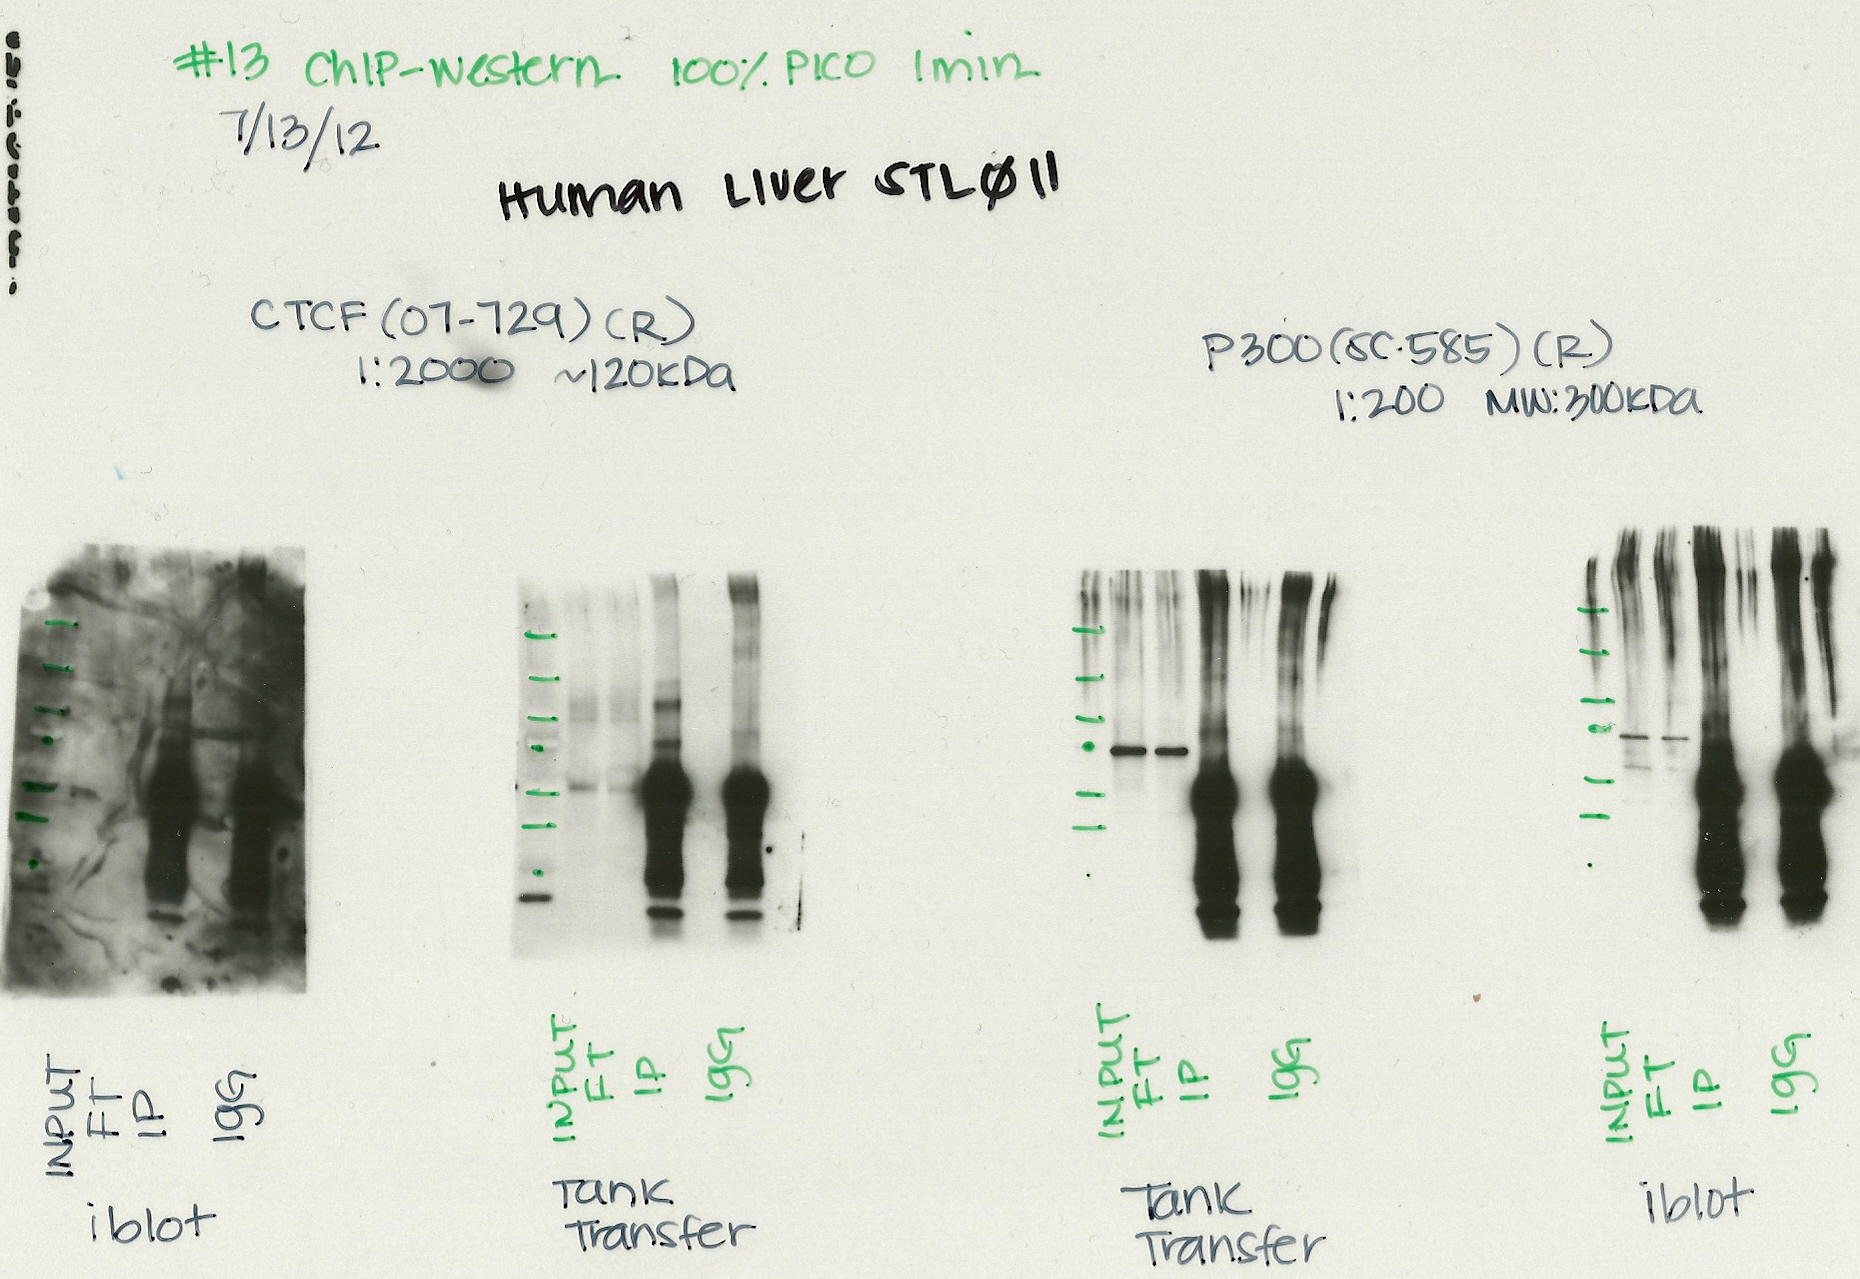 #13 ChIP-Western 100% PICO 1min
7/13/12
Human Liver STLØ11
CTCF (07-729) (R)
1:2000 ~120kDa
P300 (SC-585) (R)
1:200 MW:300kDa
INPUT
FT
IP
IgG
iblot
INPUT
FT
IP
IgG
Tank
Transfer
INPUT
FT
IP
IgG
Tank
Transfer
INPUT
FT
IP
IgG
iblot